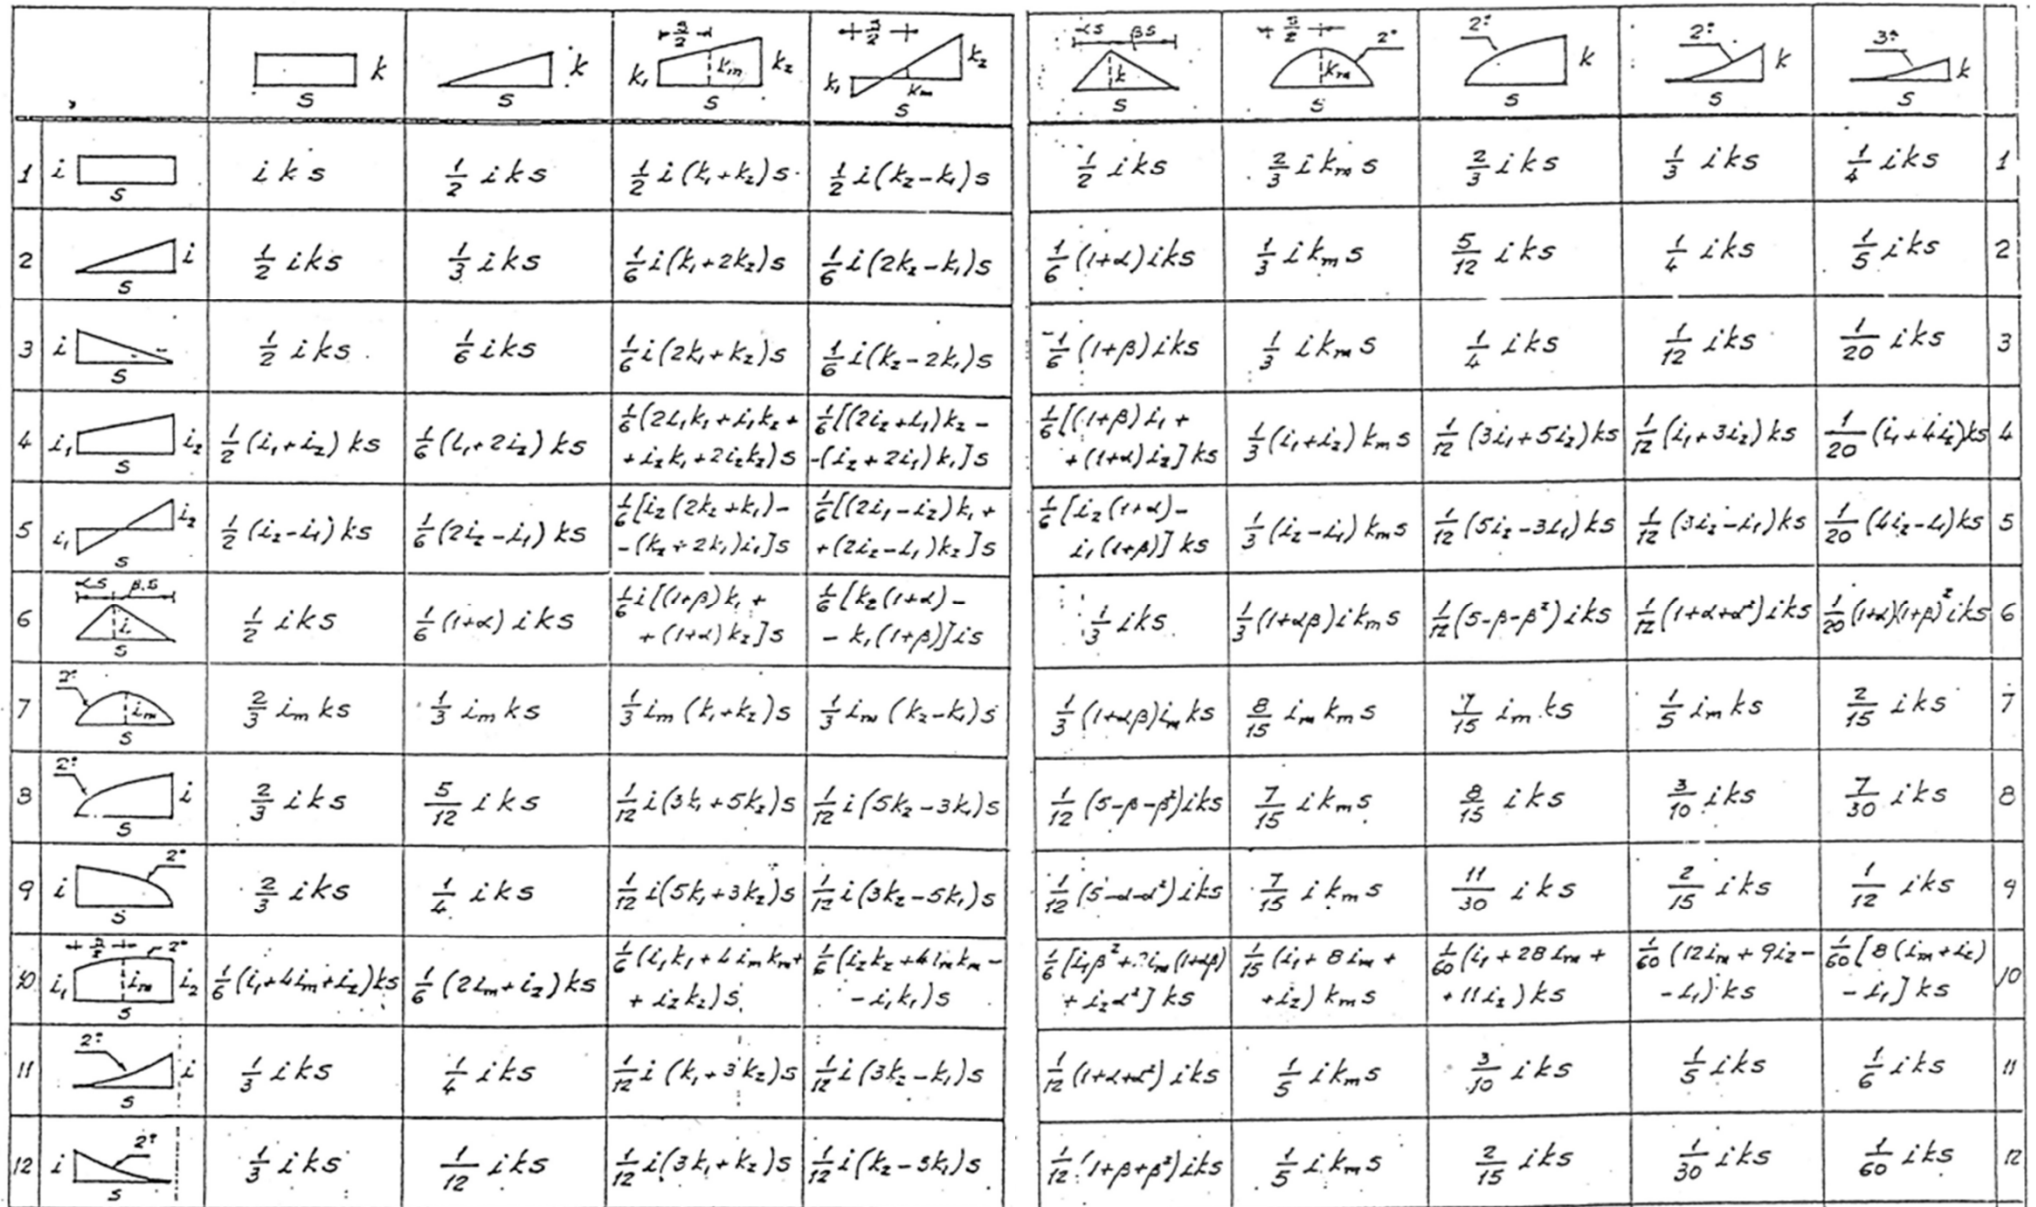 k k k₁ k₂ s/2 km k₁ k₂ s/2 km αs βs k s/2 km 2º 2º k 2º k 3º k
s s s s s s s s s
1 i s iks 1/2 iks 1/2 i(k₁+k₂)s 1/2 i(k₂-k₁)s 1/2 iks 2/3 ikm s 2/3 iks 1/3 iks 1/4 iks 1
2 i s 1/2 iks 1/3 iks 1/6 i(k₁+2k₂)s 1/6 i(2k₂-k₁)s 1/6 (1+α)iks 1/3 ikm s 5/12 iks 1/4 iks 1/5 iks 2
3 i s 1/2 iks 1/6 iks 1/6 i(2k₁+k₂)s 1/6 i(k₂-2k₁)s 1/6 (1+β)iks 1/3 ikm s 1/4 iks 1/12 iks 1/20 iks 3
4 i₁ i₂ s 1/2 (i₁+i₂)ks 1/6 (i₁+2i₂)ks 1/6 (2i₁k₁+i₁k₂+ +i₂k₁+2i₂k₂)s 1/6 [(2i₂+i₁)k₂- -(i₂+2i₁)k₁]s 1/6 [(1+β)i₁+ +(1+α)i₂]ks 1/3 (i₁+i₂)km s 1/12 (3i₁+5i₂)ks 1/12 (i₁+3i₂)ks 1/20 (i₁+4i₂)ks 4
5 i₁ i₂ s 1/2 (i₂-i₁)ks 1/6 (2i₂-i₁)ks 1/6 [i₂(2k₂+k₁)- -(k₂+2k₁)i₁]s 1/6 [(2i₁-i₂)k₁+ +(2i₂-i₁)k₂]s 1/6 [i₂(1+α)- i₁(1+β)]ks 1/3 (i₂-i₁)km s 1/12 (5i₂-3i₁)ks 1/12 (3i₂-i₁)ks 1/20 (4i₂-i₁)ks 5
6 αs β.s i s 1/2 iks 1/6 (1+α)iks 1/6 i[(1+β)k₁+ +(1+α)k₂]s 1/6 [k₂(1+α)- -k₁(1+β)]is 1/3 iks 1/3 (1+αβ)ikm s 1/12 (5-β-β²)iks 1/12 (1+α+α²)iks 1/20 (1+α)(1+β)²iks 6
7 2º im s 2/3 im ks 1/3 im ks 1/3 im (k₁+k₂)s 1/3 im (k₂-k₁)s 1/3 (1+αβ)im ks 8/15 im km s 7/15 im ks 1/5 im ks 2/15 iks 7
8 2º i s 2/3 iks 5/12 iks 1/12 i(3k₁+5k₂)s 1/12 i(5k₂-3k₁)s 1/12 (5-β-β²)iks 7/15 ikm s 8/15 iks 3/10 iks 7/30 iks 8
9 i 2º s 2/3 iks 1/4 iks 1/12 i(5k₁+3k₂)s 1/12 i(3k₂-5k₁)s 1/12 (5-α-α²)iks 7/15 ikm s 11/30 iks 2/15 iks 1/12 iks 9
10 s/2 2º i₁ im i₂ s 1/6 (i₁+4im+i₂)ks 1/6 (2im+i₂)ks 1/6 (i₁k₁+4im km+ +i₂k₂)s 1/6 (i₂k₂+4im km- -i₁k₁)s 1/6 [i₁β²+2im(1+αβ) +i₂α²]ks 1/15 (i₁+8im+ +i₂)km s 1/60 (i₁+28im+ +11i₂)ks 1/60 (12im+9i₂- -i₁)ks 1/60 [8(im+i₂) -i₁]ks 10
11 2º i s 1/3 iks 1/4 iks 1/12 i(k₁+3k₂)s 1/12 i(3k₂-k₁)s 1/12 (1+α+α²)iks 1/5 ikm s 3/10 iks 1/5 iks 1/6 iks 11
12 i 2º s 1/3 iks 1/12 iks 1/12 i(3k₁+k₂)s 1/12 i(k₂-3k₁)s 1/12 (1+β+β²)iks 1/5 ikm s 2/15 iks 1/30 iks 1/60 iks 12